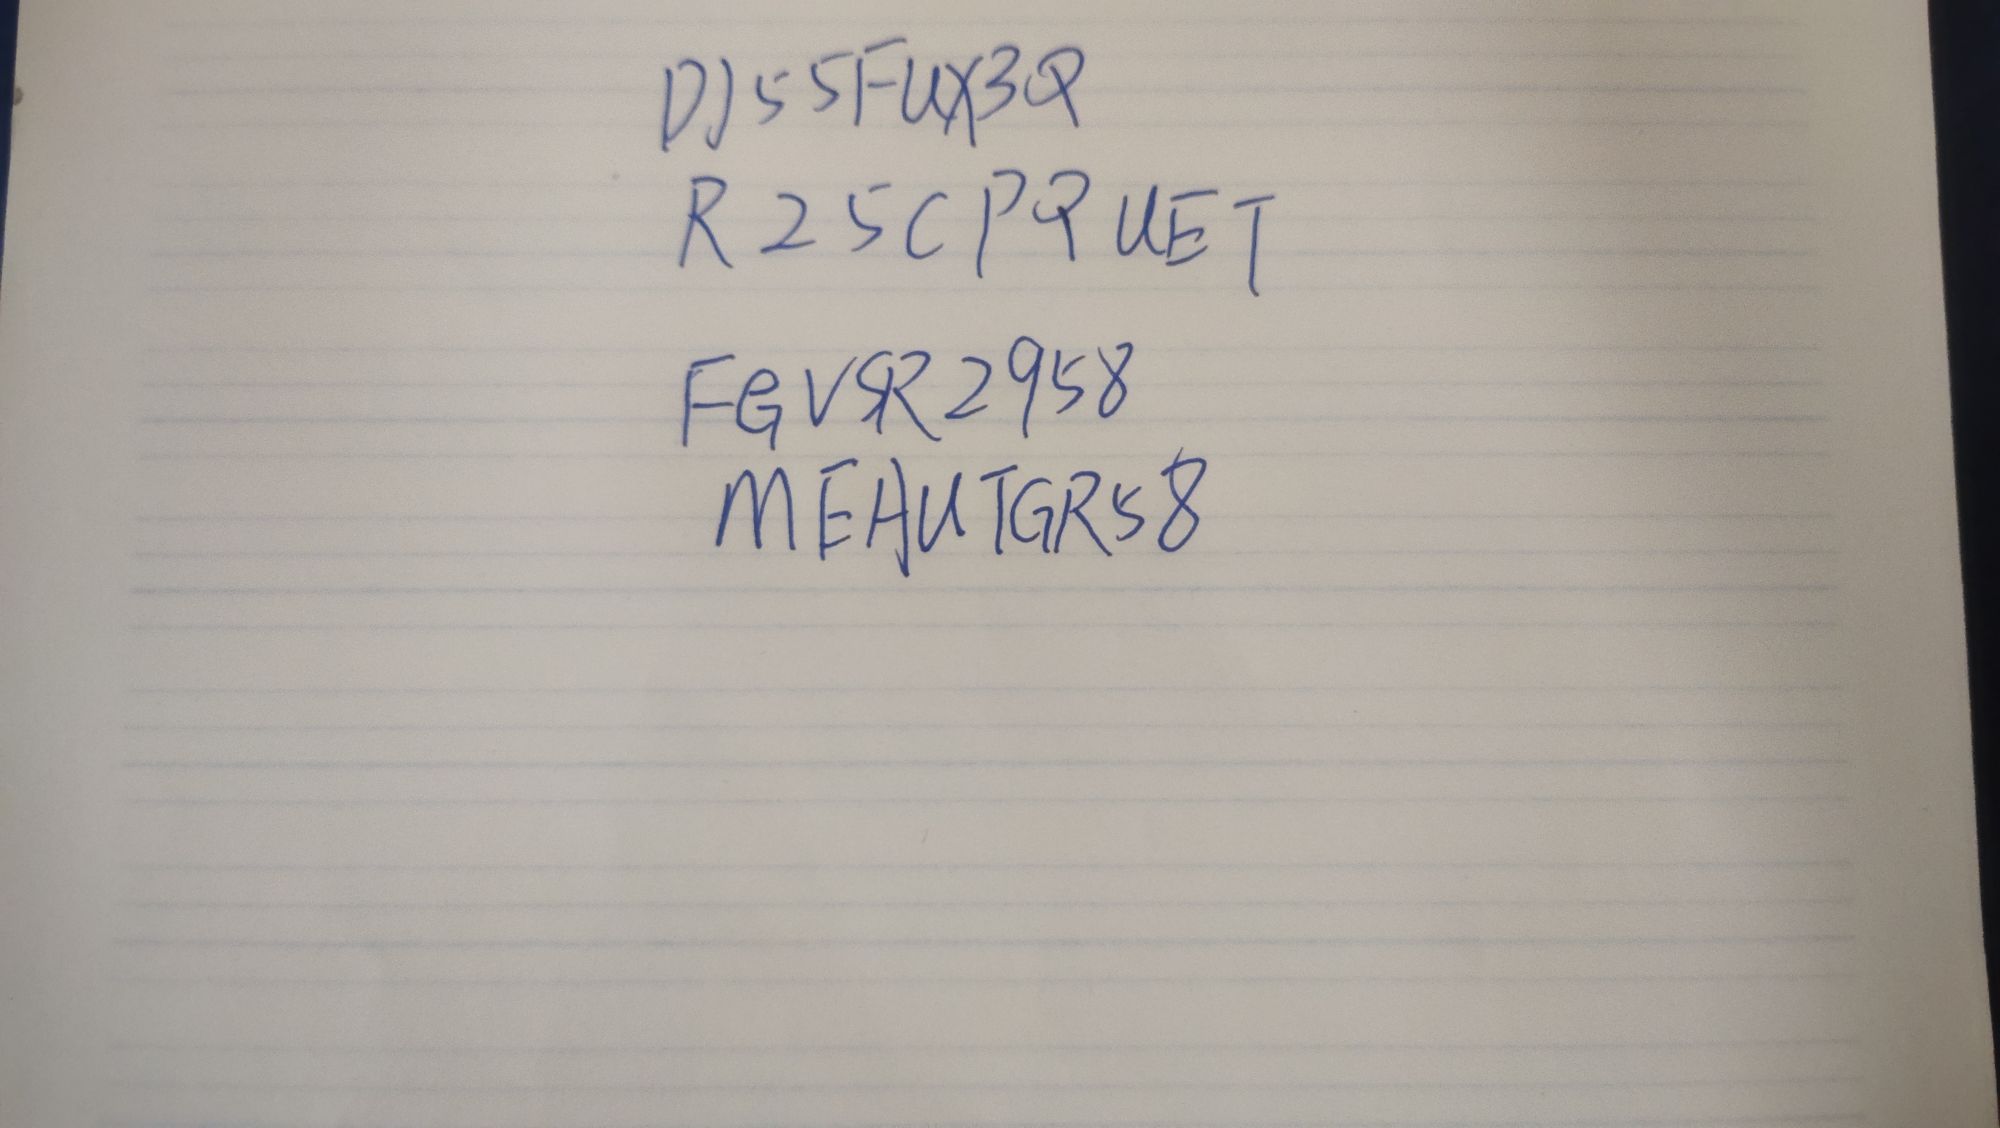 DJ55FUX3Q
R25CPQUET
FGVSR2958
MEAUTGR58